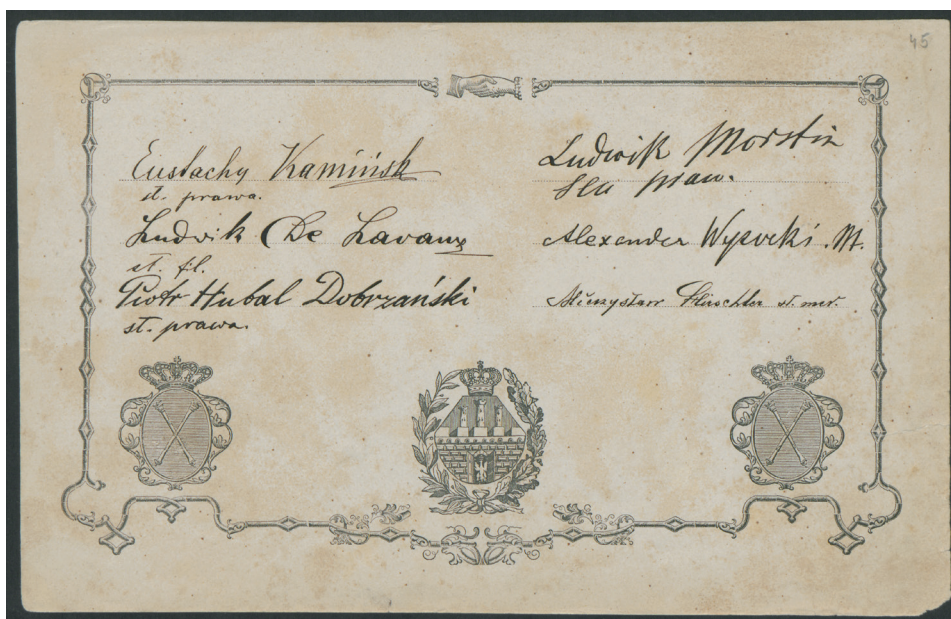 45
Eustachy Kamińsk
st. prawa.
Ludwik De Lavaux
st. fil.
Piotr Hubal Dobrzański
st. prawa.
Ludwik Morstin
praw.
Alexander Wysocki . M.
Mieczysław st. med.